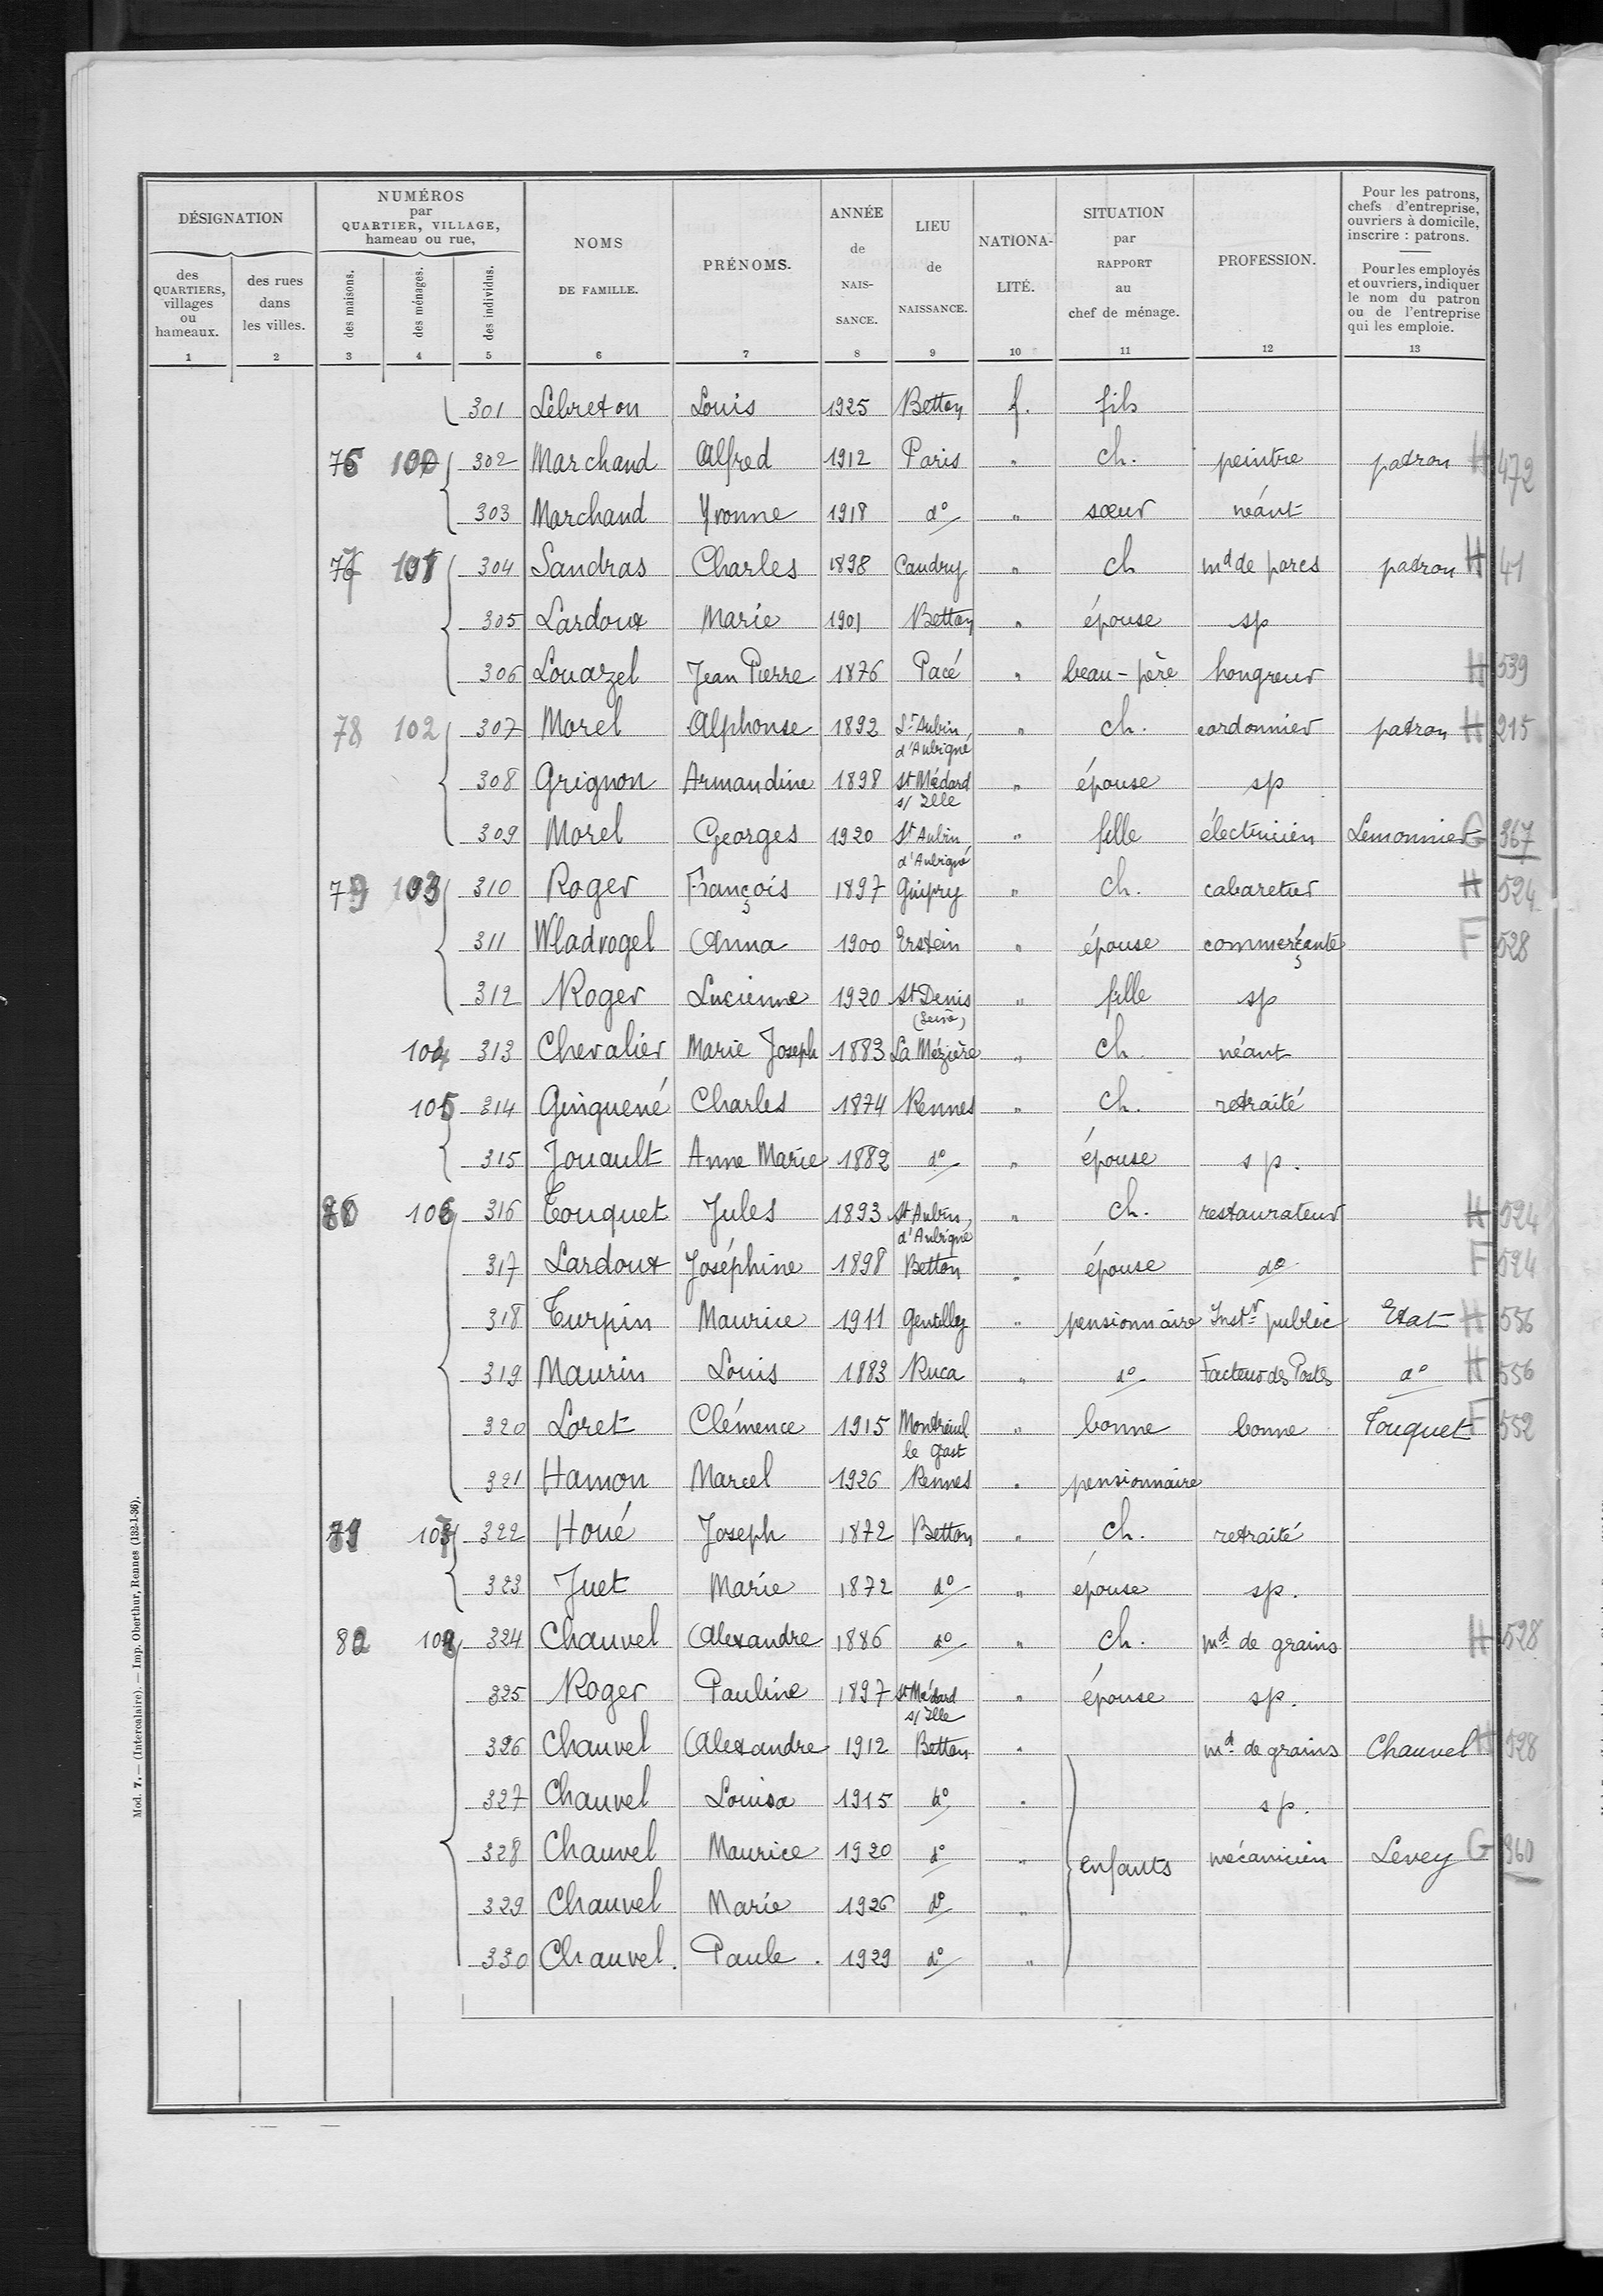 DÉSIGNATION
NUMÉROS
par
QUARTIER, VILLAGE,
hameau ou rue,
des
QUARTIERS,
villages
ou
hameaux.
des rues
dans
les villes.
des maisons.
des ménages.
des individus.
NOMS
DE FAMILLE.
PRÉNOMS.
ANNÉE
de
NAIS-
SANCE.
LIEU
de
NAISSANCE.
NATIONA-
LITÉ.
SITUATION
par
RAPPORT
au
chef de ménage.
PROFESSION.
Pour les patrons,
chefs d'entreprise,
ouvriers à domicile,
inscrire : patrons.
Pour les employés
et ouvriers, indiquer
le nom du patron
ou de l'entreprise
qui les emploie.
1 2 3 4 5 6 7 8 9 10 11 12 13
301 Lebreton Louis 1925 Betton f. fils
76 100 302 Marchand Alfred 1912 Paris " ch. peintre patron H 472
303 Marchand Yvonne 1918 d° " sœur néant
77 101 304 Sandras Charles 1898 Caudry " ch md de porcs patron H 41
305 Lardoux Marie 1901 Betton " épouse sp
306 Louazel Jean Pierre 1876 Pacé " beau-père hongreur H 539
78 102 307 Morel Alphonse 1892 St Aubin d'Aubigné " ch. cordonnier patron H 215
308 Grignon Armandine 1898 St Médard s/ Ille " épouse sp
309 Morel Georges 1920 St Aubin d'Aubigné " fille électricien Lemonnier G 367
79 103 310 Roger François 1897 Guipry " ch. cabaretier H 524
311 Wladvogel Anna 1900 Erstein " épouse commerçante F 528
312 Roger Lucienne 1920 St Denis (Seine) " fille sp
104 313 Chevalier Marie Joseph 1883 La Mézière " ch. néant
105 314 Guinguené Charles 1874 Rennes " ch. retraité
315 Jouault Anne Marie 1882 d° " épouse sp.
80 106 316 Touquet Jules 1893 St Aubin d'Aubigné " ch. restaurateur H 524
317 Lardoux Joséphine 1898 Betton " épouse d° F 524
318 Turpin Maurice 1911 Gentilly " pensionnaire Instr public Etat H 556
319 Maurin Louis 1883 Ruca " d° Facteur des Postes d° H 556
320 Loret Clémence 1915 Montreuil le Gast " bonne bonne Touquet F 552
321 Hamon Marcel 1926 Rennes " pensionnaire
107 322 Houé Joseph 1872 Betton " ch. retraité
323 Juet Marie 1872 d° " épouse sp.
82 108 324 Chauvel Alexandre 1886 d° " ch. md de grains H 528
325 Roger Pauline 1897 St Médard s/ Ille " épouse sp.
326 Chauvel Alexandre 1912 Betton " md de grains Chauvel H 528
327 Chauvel Louisa 1915 d° " sp.
328 Chauvel Maurice 1920 d° " enfants mécanicien Levey G 360
329 Chauvel Marie 1926 d° "
330 Chauvel. Paule. 1929 d° "
Mod. 7. — (Intercalaire). — Imp. Oberthur, Rennes (132-1-36).